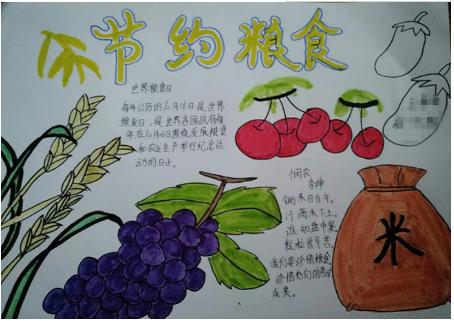 节约粮食
世界粮食日
每年公历的10月16日是世界
粮食日，是世界各国政府每
年在10月16日围绕发展粮食
和农业生产举行纪念活
动的日子
悯农
李绅
锄禾日当午，
汗滴禾下土。
谁知盘中餐，
粒粒皆辛苦。
我们要珍惜粮食
珍惜他们的劳动
成果。
米